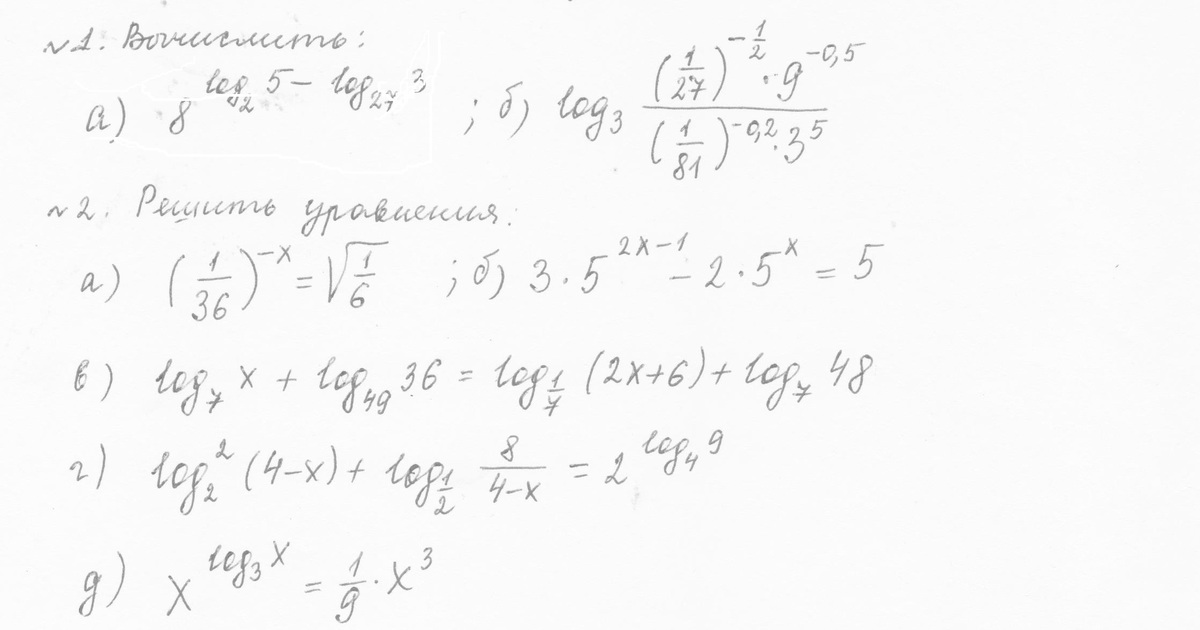 №1. Вычислить:
а) 8^(log_2 5 − log_27 3) ; б) log_3 ((1/27)^(−1/2) · 9^(−0,5)) / ((1/81)^(−0,2) · 3^5)
№2. Решить уравнения:
а) (1/36)^(−x) = √(1/6) ; б) 3 · 5^(2x−1) − 2 · 5^x = 5
в) log_7 x + log_49 36 = log_(1/7) (2x+6) + log_7 48
г) log_2^2 (4−x) + log_(1/2) 8/(4−x) = 2^(log_4 9)
д) x^(log_3 x) = 1/9 · x^3